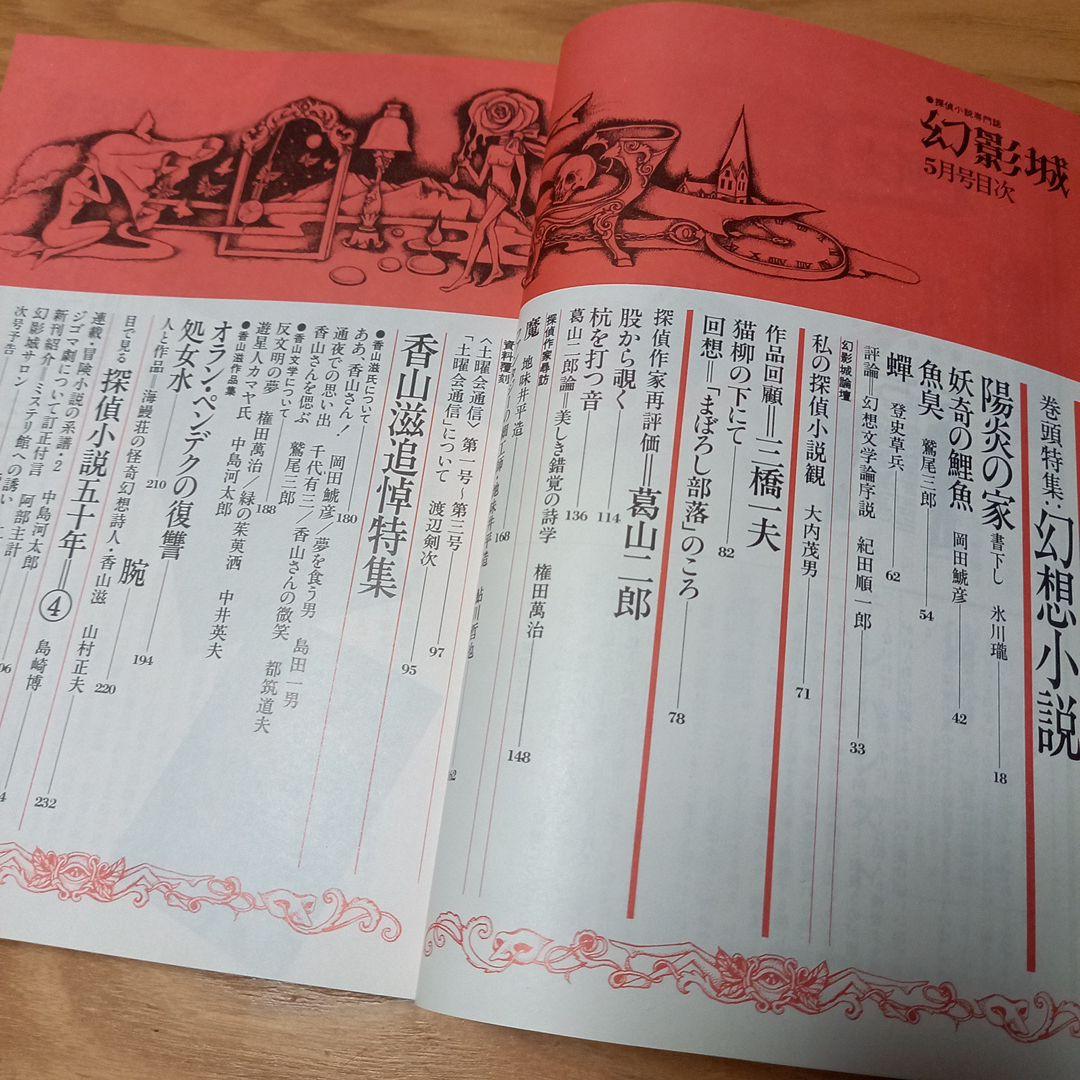 ●探偵小説専門誌
幻影城
5月号目次
巻頭特集:幻想小説
陽炎の家 書下し 氷川瓏 18
妖奇の鯉魚 岡田鯱彦 42
魚臭 鷲尾三郎 54
蟬 登史草兵 62
評論=幻想文学論序説 紀田順一郎 33
幻影城論壇
私の探偵小説観 大内茂男 71
作品回顧=三橋一夫
猫柳の下にて 82
回想=「まぼろし部落」のころ 78
探偵作家再評価=葛山二郎
股から覗く 114
杭を打つ音 136
葛山二郎論=美しき錯覚の詩学 権田萬治 148
探偵作家尋訪
魔 地味井平造 168
資料復刻
〈土曜会通信〉第一号〜第三号 97
「土曜会通信」について 渡辺剣次
香山滋追悼特集 95
●香山滋氏について
ああ、香山さん! 岡田鯱彦/夢を食う男 島田一男 180
通夜での思い出 千代有三/香山さんの微笑 都筑道夫
香山さんを偲ぶ 鷲尾三郎
●香山文学について 188
反文明の夢 権田萬治/緑の茱萸酒 中井英夫
遊星人カマヤ氏 中島河太郎
●香山滋作品集
オラン・ペンデクの復讐
処女水 210 腕 194
人と作品=海鰻荘の怪奇幻想詩人・香山滋 山村正夫 220
目で見る 探偵小説五十年=④ 島崎博
連載・冒険小説の系譜・2 中島河太郎 232
ジゴマ劇について訂正付言 阿部主計
新刊紹介
幻影城サロン ミステリ館への誘い
次号予告